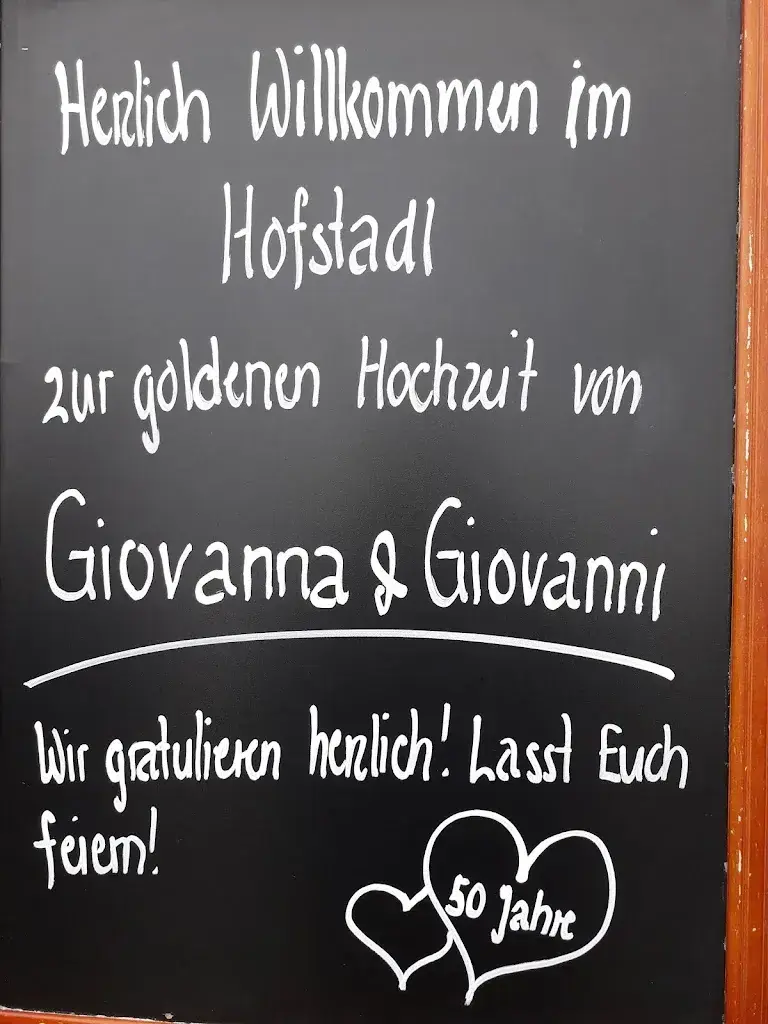 Herzlich Willkommen im
Hofstadl
zur goldenen Hochzeit von
Giovanna & Giovanni
Wir gratulieren herzlich! Lasst Euch
feiern!
50 Jahre